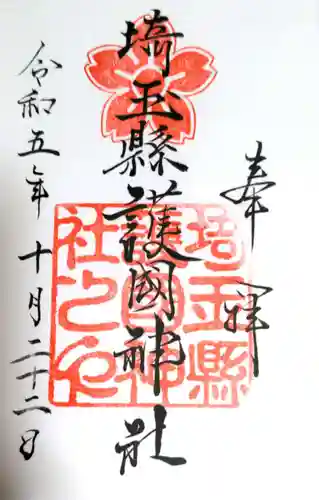 奉拝
埼玉縣護國神社
埼玉縣護國神社之印
令和五年十月二十二日